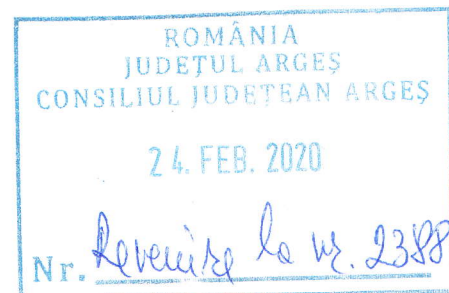 ROMÂNIA
JUDEŢUL ARGEŞ
CONSILIUL JUDEŢEAN ARGEŞ
24. FEB. 2020
Nr. Revenire la nr. 2388